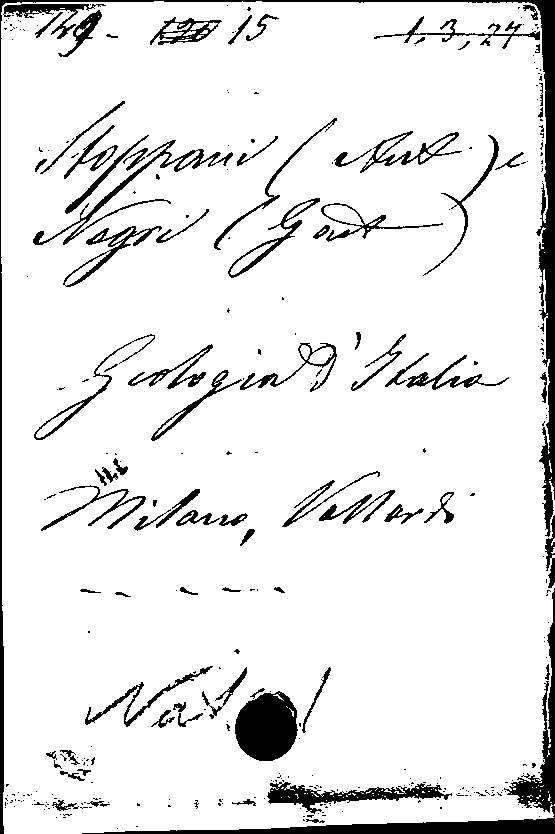 149 - 15 1, 3, 27
Stoppani (Ant.) e
Negri (Gaet)
Geologia D'Italia
Milano, Vallardi